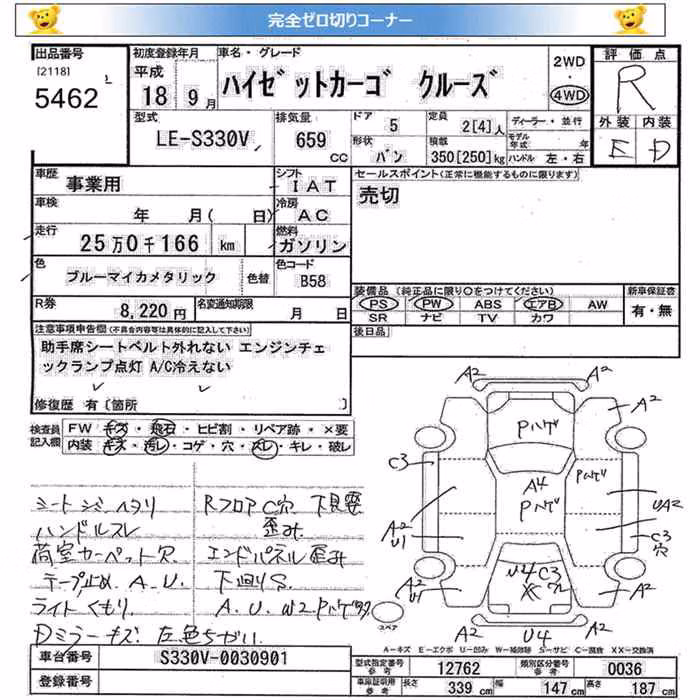 完全ゼロ切りコーナー
出品番号
[2118]
5462
初度登録年月
平成
18年 9月
車名・グレード
ハイゼットカーゴ クルーズ
2WD
・
4WD
評価点
R
外装 内装
E D
型式
LE-S330V
排気量
659
CC
ドア 5
定員 2[4]人
ディーラー・並行
形状 バン
積載 350[250]kg
モデル年式 年
ハンドル 左・右
車歴 事業用
シフト IAT
セールスポイント(正常に機能するものに限ります)
売切
車検 年 月( 日)
冷房 AC
走行 25万0千166 km
燃料 ガソリン
色 ブルーマイカメタリック 色替
色コード B58
装備品 (純正品に限り○をつけてください)
PS PW ABS エアB AW
SR ナビ TV カワ
新車保証書
有・無
R券 8,220円
名変通知期限 月 日
後日品
注意事項申告欄 (不具合内容等は具体的に記入して下さい)
助手席シートベルト外れない エンジンチェ
ックランプ点灯 A/C冷えない
修復歴 有[箇所 ]
検査員記入欄
FW キズ・飛石・ヒビ割・リペア跡・×要
内装 キズ・汚レ・コゲ・穴・スレ・キレ・破レ
シートシミ、ヘタリ
ハンドルスレ
荷室カーペット穴
テープ止め A.U.
ライトくもり
Dミラーキズ 左色ちがい
Rフロア C穴 下見要
歪み
エンドパネル歪み
下廻りS
A.U. W2 Pハゲ多
A2 A2
A2
Pハゲ
C3
A4
Pハゲ
Pハゲ
A2
U1
UA2
C3
穴
U4 C3
穴
A2
U1
A2
A2 U4 A2
スペア
A-キズ E-エクボ U-凹み W-補修跡 S-サビ C-腐食 XX-交換済
車台番号 S330V-0030901
登録番号
型式指定番号 参考 12762
類別区分番号 参考 0036
車庫証明用 参考 長さ 339 cm 幅 147 cm 高さ 187 cm